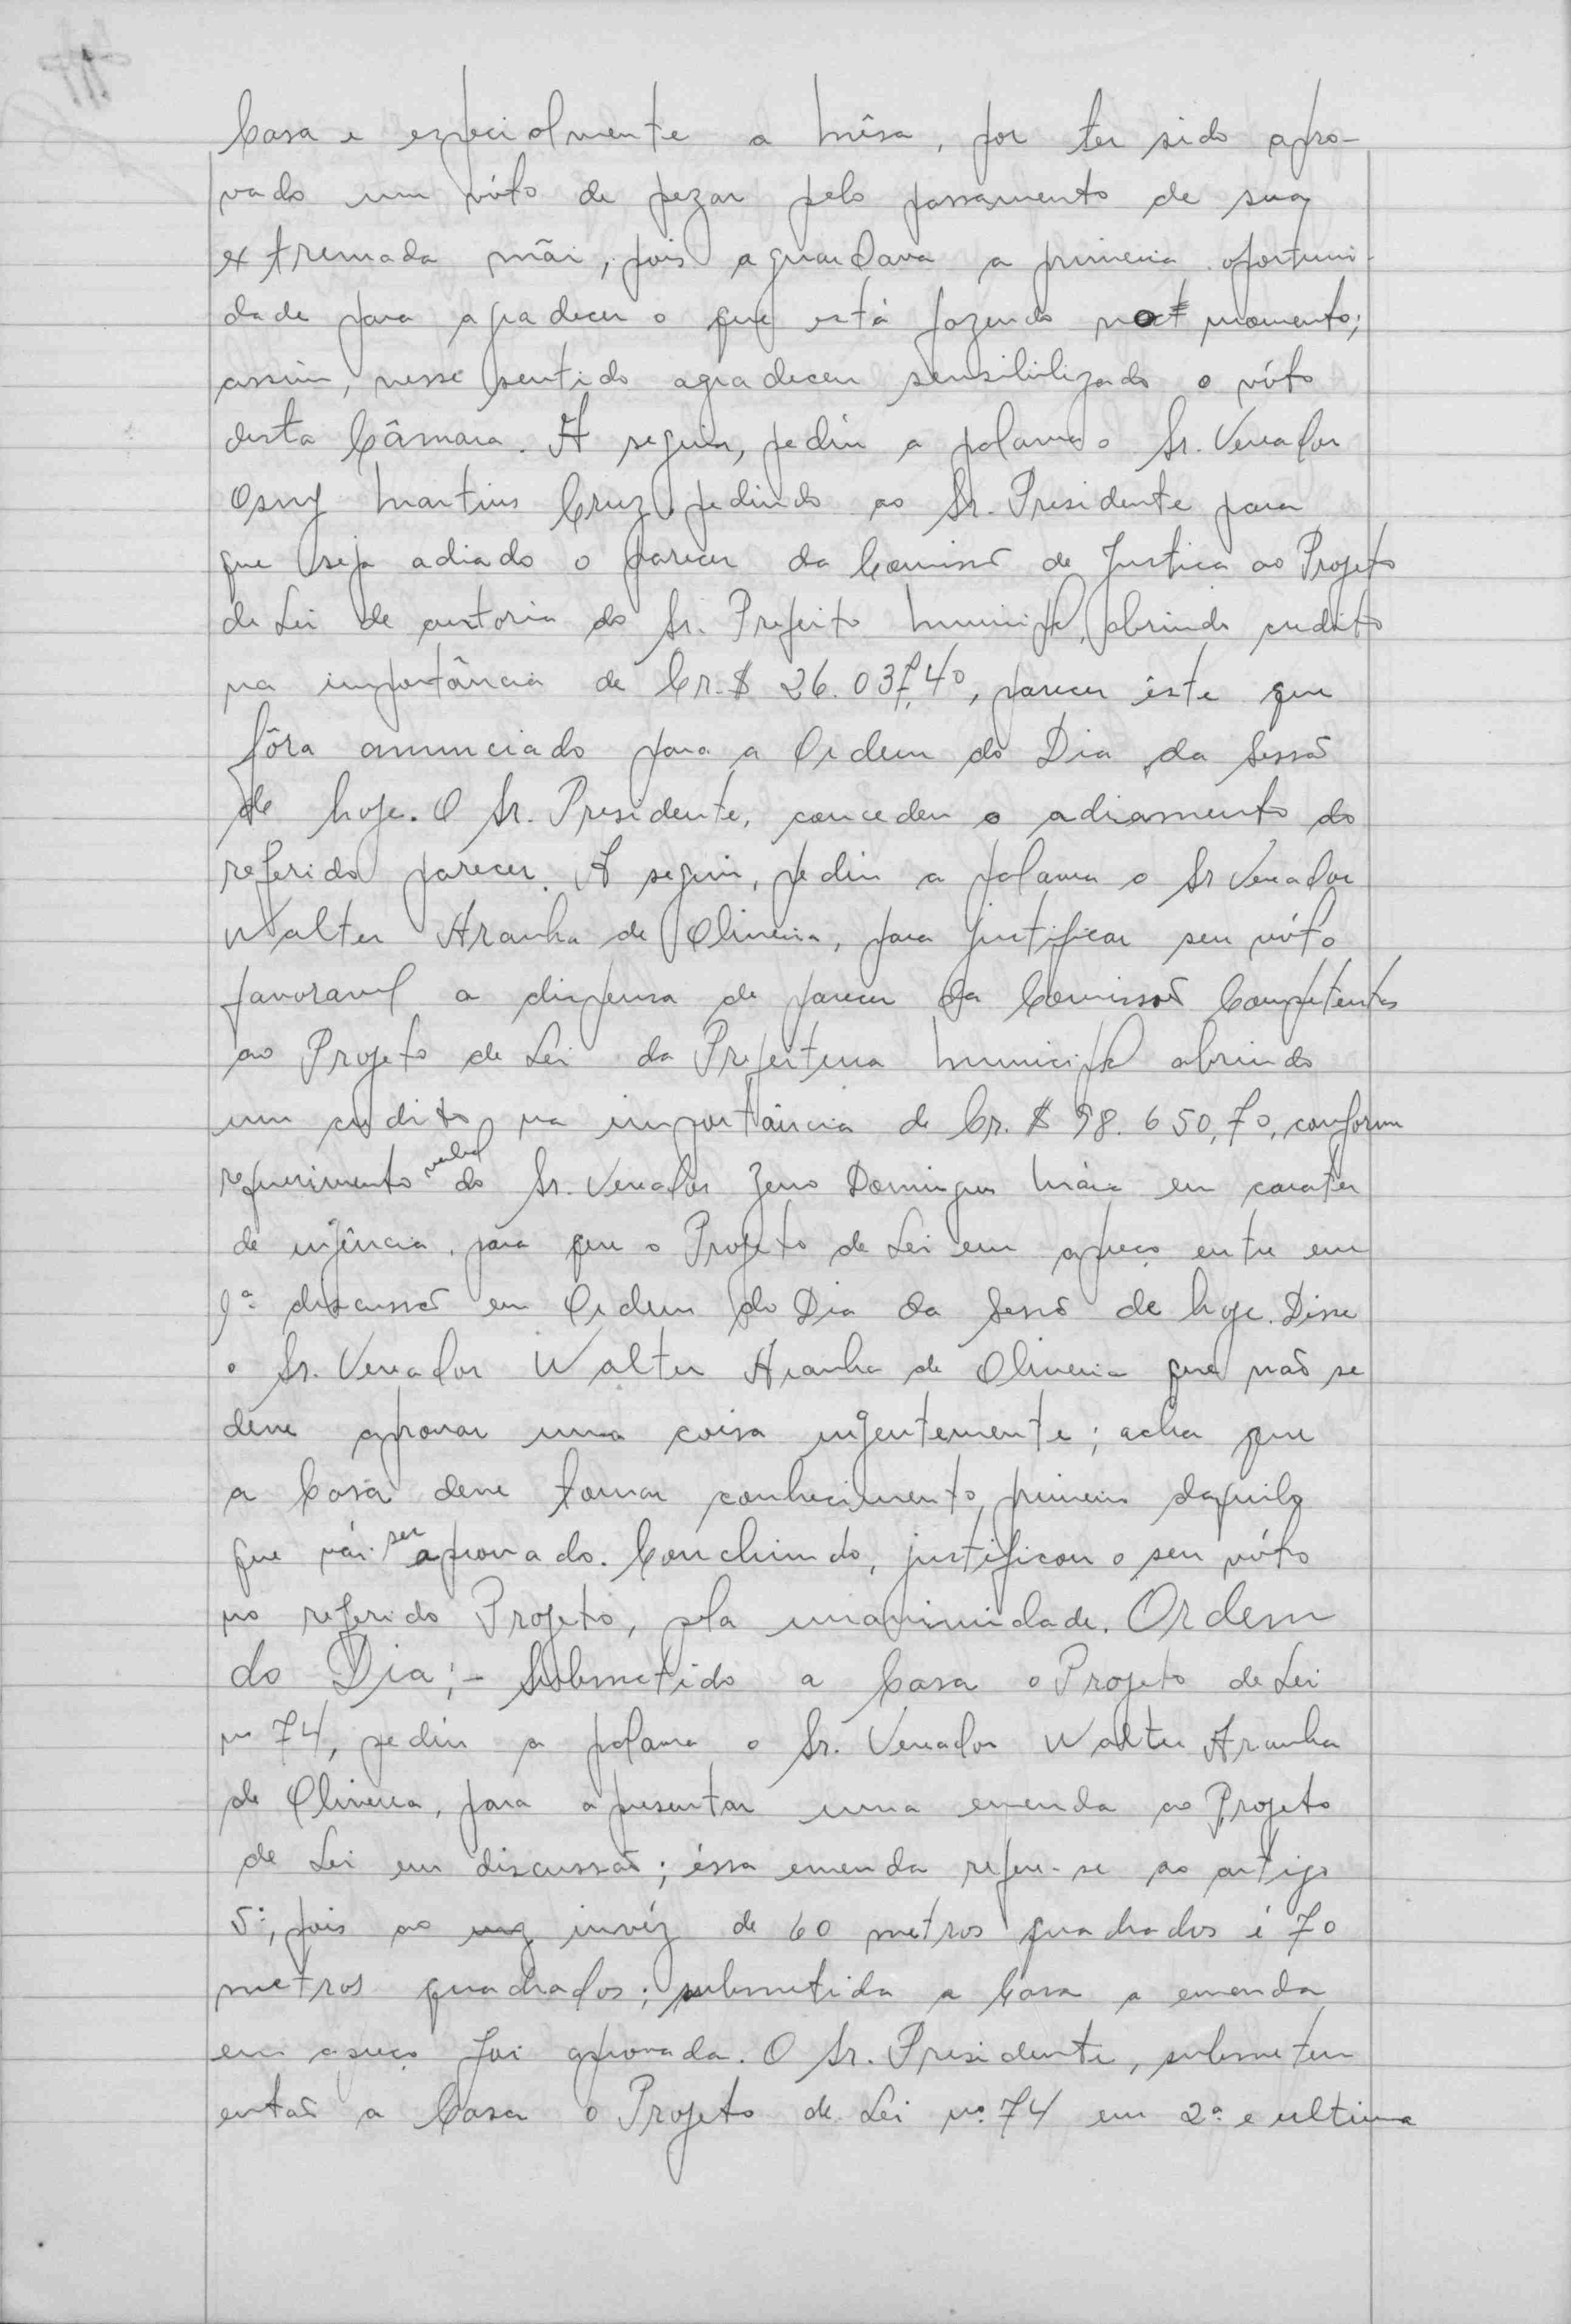 Casa e especialmente a Mêsa, por ter sido apro-
vado um vóto de pezar pelo passamento de sua
extremada mãi, pois aguardava a primeira oportuni-
dade para agradecer o que está fazendo no momento;
assim, nesse sentido agradeceu sensibilizado o vóto
desta Câmara. A seguir, pediu a palavra o Sr. Vereador
Osny Martins Cruz, pedindo ao Sr. Presidente para
que seja adiado o parecer da Comissão de Justiça ao Projeto
de Lei de autoria do Sr. Prefeito Municipal, abrindo credito
na importância de Cr.$ 26.037,40, parecer êste que
fôra anunciado para a Ordem do Dia da Sessão
de hoje. O Sr. Presidente, concedeu o adiamento do
referido parecer. A seguir, pediu a palavra o Sr Vereador
Walter Aranha de Oliveira, para justificar seu vóto
favoravel a dispensa de parecer da Comissão Competentes
ao Projeto de Lei da Prefeitura Municipal abrindo
um credito na importância de Cr.$ 98.650,70, conforme
requerimento verbal do Sr. Vereador Zeno Domingues Máia em carater
de urgência, para que o Projeto de Lei em apreço entre em
1ª discussão em Ordem do Dia da Sessão de hoje. Disse
o Sr. Vereador Walter Aranha de Oliveira que não se
deve aprovar uma coisa urgentemente; acha que
a Casa deve tomar conhecimento, primeiro daquilo
que vái ser aprovado. Concluindo, justificou o seu vóto
no referido Projeto, pela unanimidade. Ordem
do Dia;- Submetido a Casa o Projeto de Lei
nº 74, pediu a palavra o Sr. Vereador Walter Aranha
de Oliveira, para apresentar uma emenda ao Projeto
de Lei em discussão; éssa emenda refere-se ao artigo
5º, pois ao invéz de 60 metros quadrados é 70
metros quadrados; submetida a Casa a emenda
em apreço foi aprovada. O Sr. Presidente, submeteu
então a Casa o Projeto de Lei nº 74 em 2ª e ultima